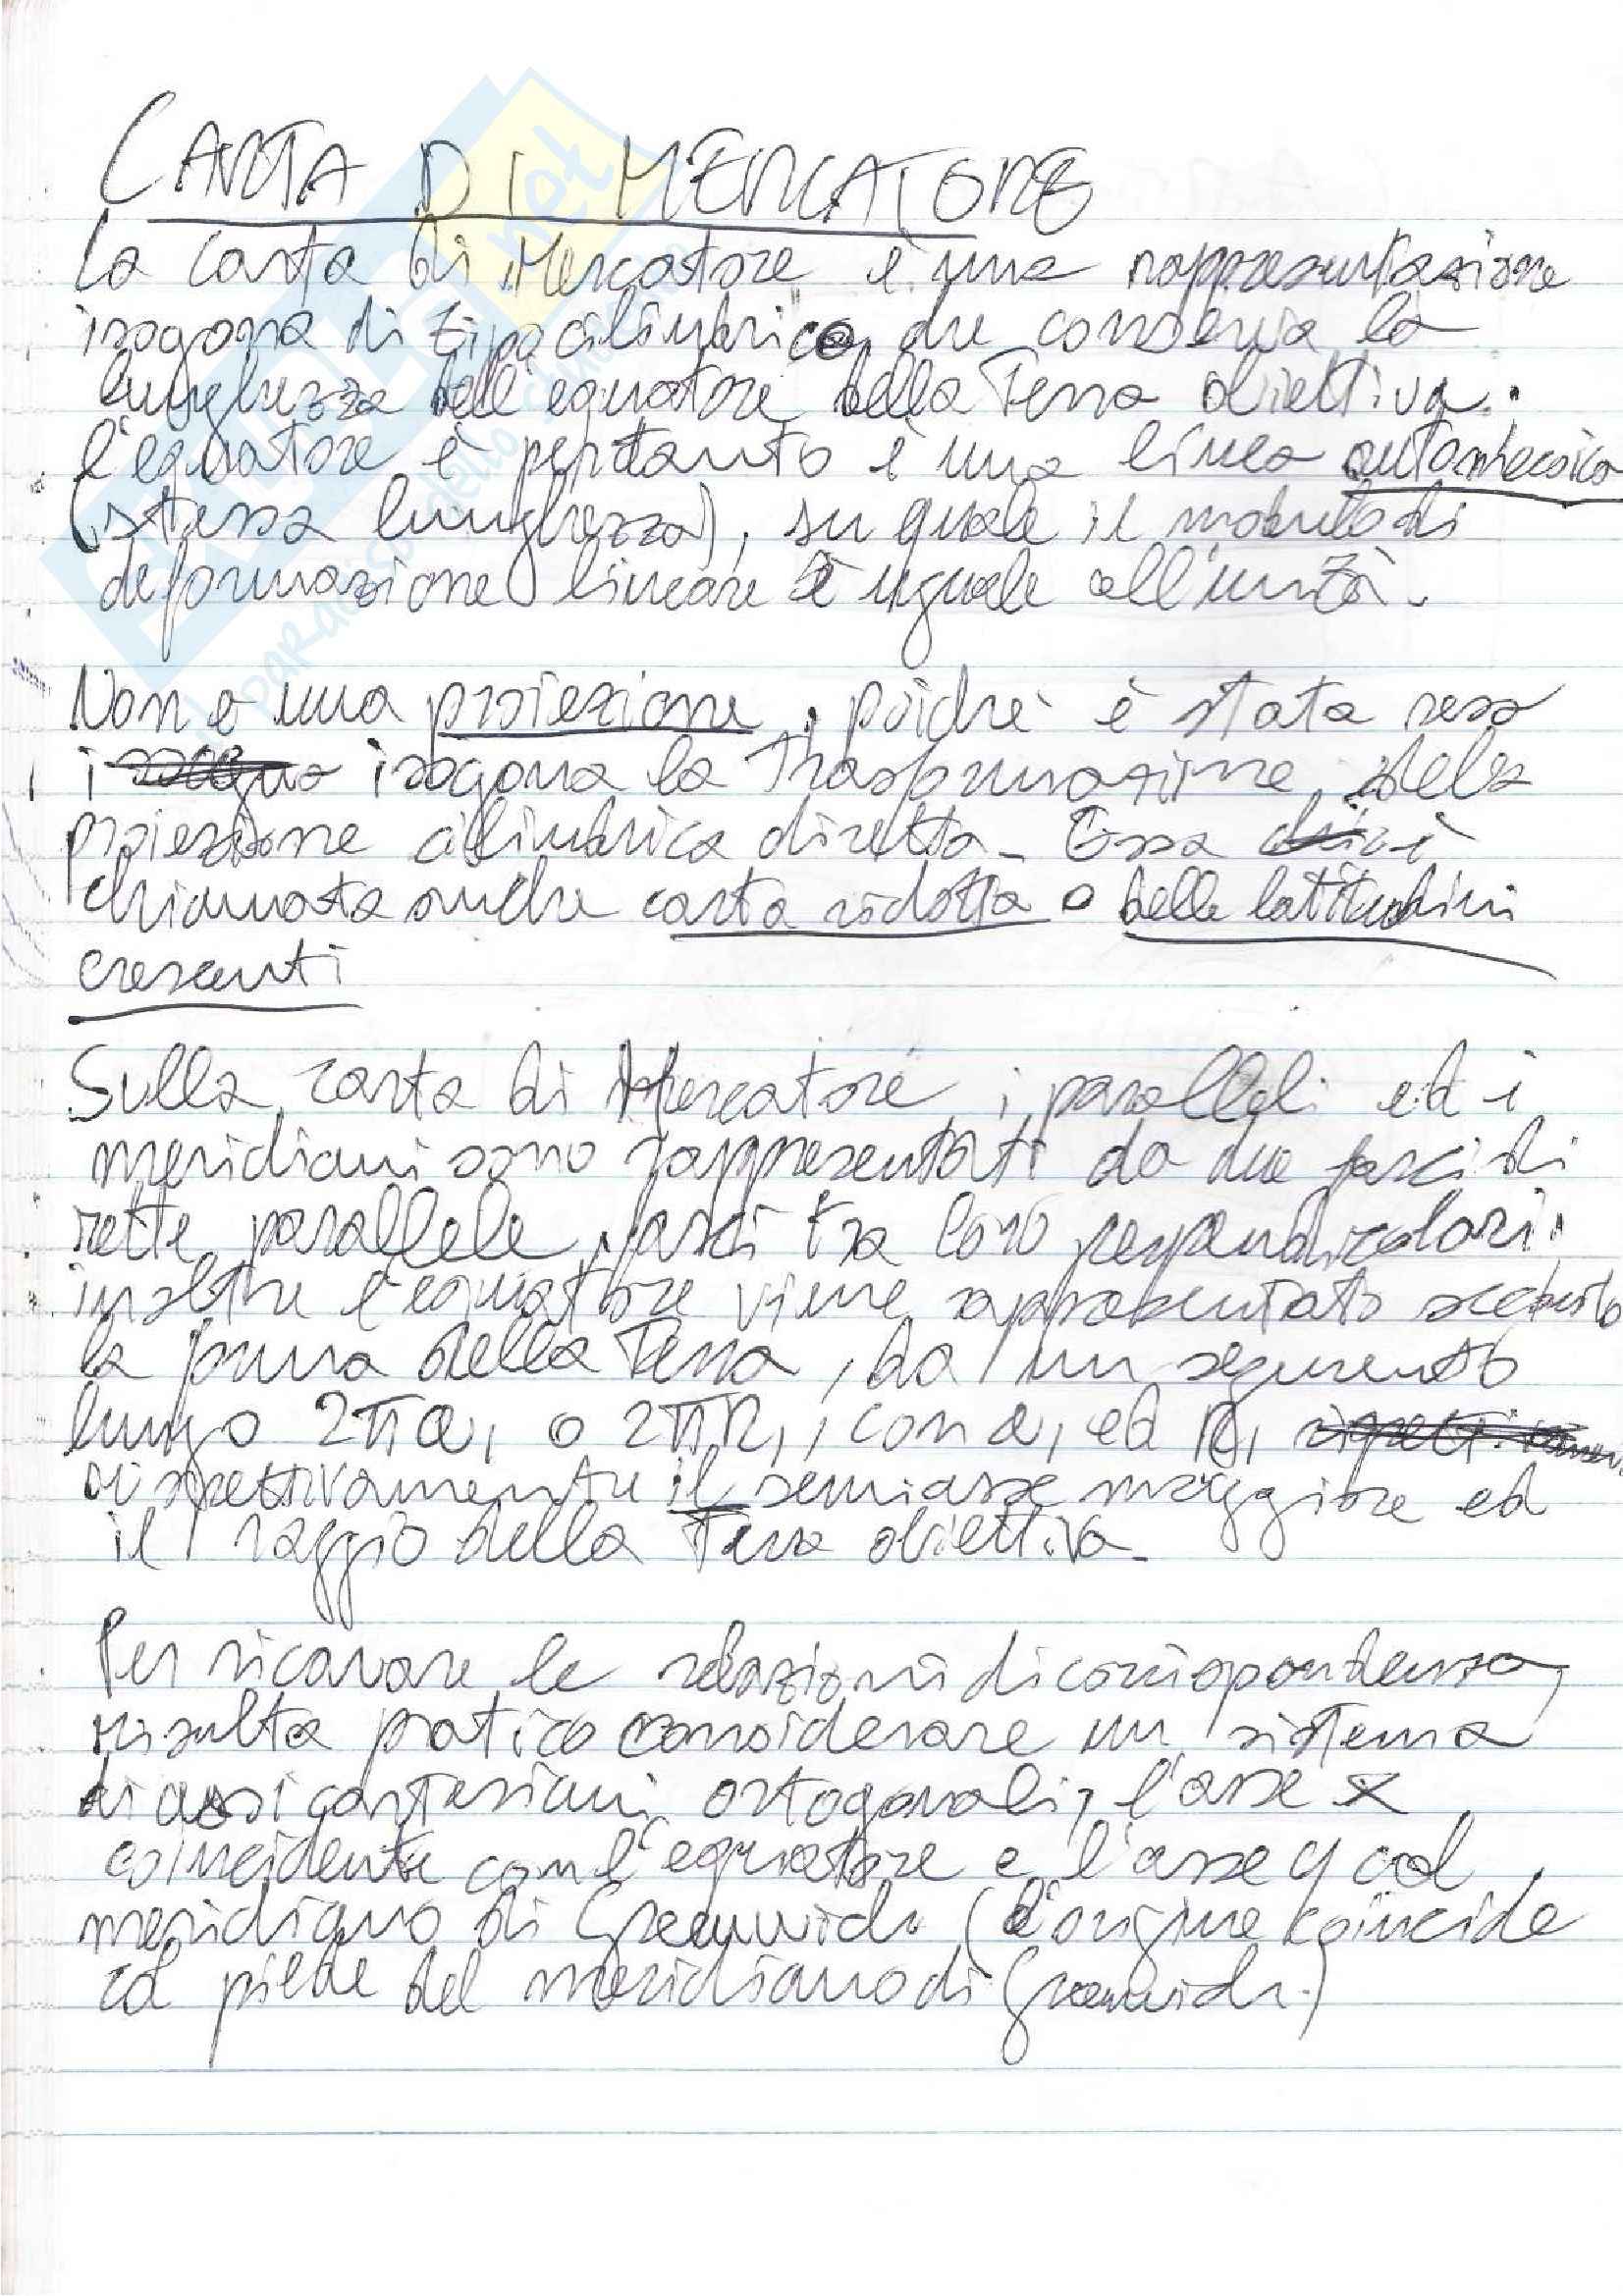 CARTA DI MERCATORE
La carta di Mercatore è una rappresentazione
isogona di tipo cilindrico che conserva la
lunghezza dell'equatore della Terra obiettiva.
l'equatore è pertanto è una linea automecoica
(stessa lunghezza), su quale il modulo di
deformazione lineare è uguale all'unità.
Non è una proiezione, poichè è stata resa
isogona la trasformazione della
proiezione cilindrica diretta. Essa è
chiamata anche carta ridotta o delle latitudini
crescenti
Sulla carta di Mercatore i paralleli ed i
meridiani sono rappresentati da due fasci di
rette parallele, fasci tra loro perpendicolari;
inoltre l'equatore viene rappresentato secondo
la forma della Terra, da un segmento
lungo 2πa, o 2πR, con a, ed R,
rispettivamente il semiasse maggiore ed
il raggio della Terra obiettiva.
Per ricavare le relazioni di corrispondenza,
risulta pratico considerare un sistema
di assi cartesiani ortogonali, l'asse x
coincidente con l'equatore e l'asse y col
meridiano di Greenwich (l'origine coincide
col piede del meridiano di Greenwich.)